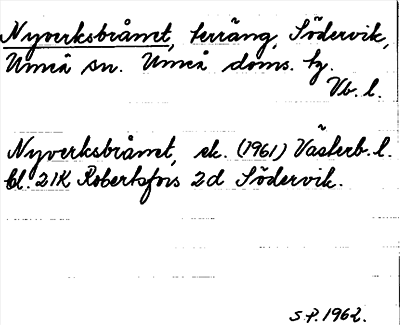 Nyverksbråmet, terräng, Södervik,
Umeå sn. Umeå doms. hg.
Vb. l.
Nyverksbråmet, ek. (1961) Västerb. l.
bl. 21K Robertsfors 2d Södervik.
S.P. 1962.